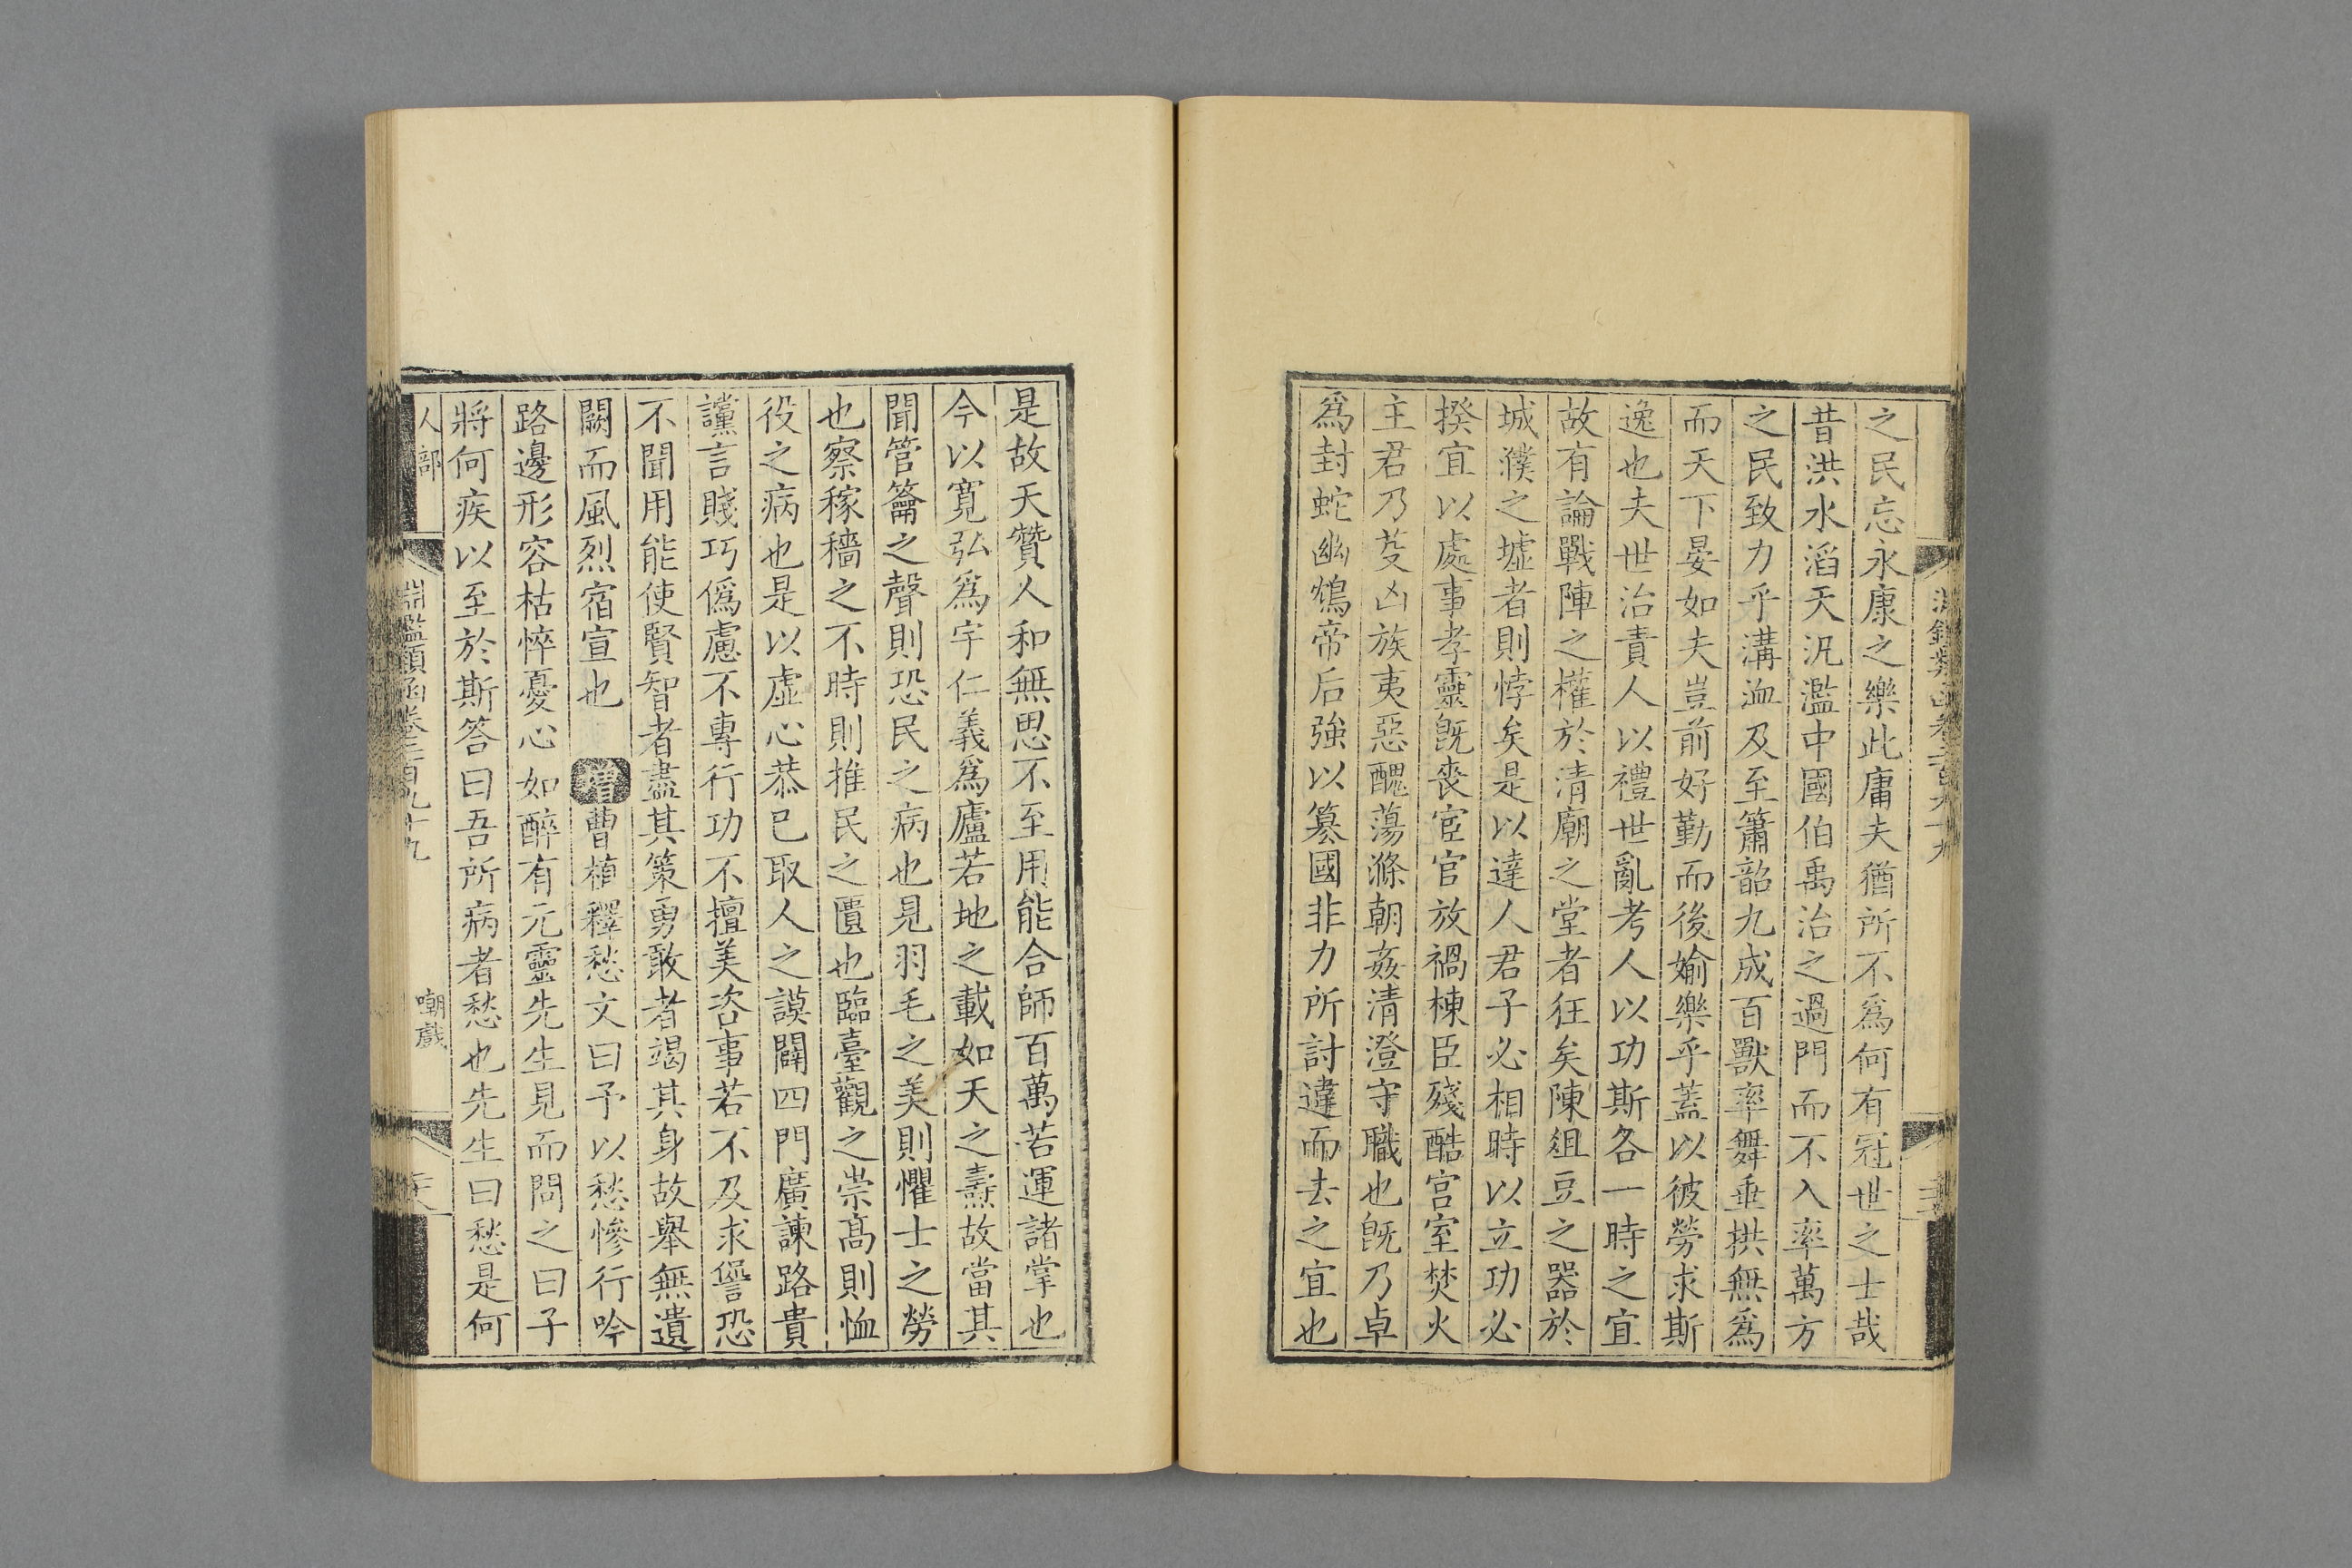 之民忘永康之樂此庸夫猶所不爲何有冠世之士哉
昔洪水滔天汎濫中國伯禹治之過門而不入率萬方
之民致力乎溝洫及至簫韶九成百獸率舞垂拱無爲
而天下晏如夫豈前好勤而後媮樂乎蓋以彼勞求斯
逸也夫世治責人以禮世亂考人以功斯各一時之宜
故有論戰陣之權於清廟之堂者狂矣陳俎豆之器於
城濮之墟者則悖矣是以達人君子必相時以立功必
揆宜以處事孝靈旣喪宦官放禍棟臣殘酷宮室焚火
主君乃芟凶族夷惡醜蕩滌朝姦清澄守職也旣乃卓
爲封蛇幽鴆帝后強以篡國非力所討違而去之宜也
是故天贊人和無思不至用能合師百萬若運諸掌也
今以寬弘爲宇仁義爲廬若地之載如天之燾故當其
聞管籥之聲則恐民之病也見羽毛之美則懼士之勞
也察稼穡之不時則推民之匱也臨臺觀之崇高則恤
役之病也是以虛心恭已取人之謨闢四門廣諫路貴
讜言賤巧僞慮不專行功不擅美咨事若不及求譽恐
不聞用能使賢智者盡其策勇敢者竭其身故舉無遺
闕而風烈宿宣也 增曹植釋愁文曰予以愁慘行吟
路邊形容枯悴憂心如醉有元靈先生見而問之曰子
將何疾以至於斯答曰吾所病者愁也先生曰愁是何
人部
淵鑑類函卷三百九十九
嘲戲